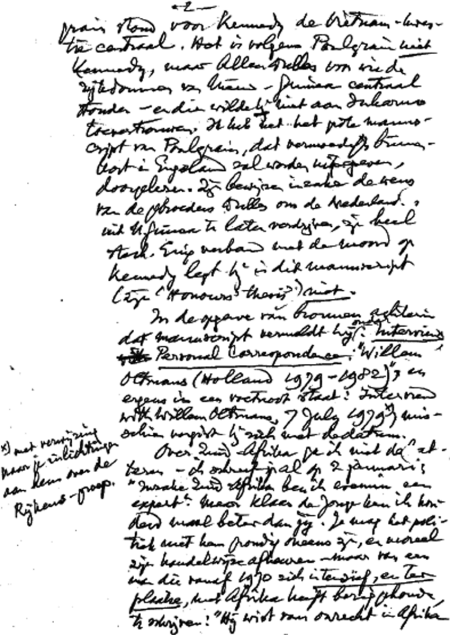 -2-
grain stond voor Kennedy de Vietnam-kwes-
tie centraal. Het is volgens Poulgrain niet
Kennedy, maar Allen Dulles voor wie de
rijkdommen van Nieuw-Guinea centraal
stonden - en die wilde hij niet aan Sukarno
toevertrouwen. Ik heb het grote manu-
script van Poulgrain, dat vermoedelijk binnen-
kort in Engeland zal worden uitgegeven,
doorgelezen. Zijn bewijzen inzake de wens
van de gebroeders Dulles om de Nederland.
uit N.Guinea te laten verdrijven, zijn heel
sterk. Enig verband met de moord op
Kennedy legt hij in dit manuscript
(zijn "Honours thesis") niet.
In de opgave van bronnen achterin
dat manuscript vermeldt hij onder: Interviews
Personal Correspondence: "Willem
Oltmans (Holland 1979-1982)"; en
ergens in een voetnoot staat: Interview
with Willem Oltmans, 7 July 1979 x) mis-
schien vergist hij zich met de datum.
x) met verwijzing
naar je inlichtingen
aan hem over de
Rijkens-groep.
Over Zuid-Afrika ga ik niet de
- ik schreef je al op 2 januari:
"inzake Zuid-Afrika ben ik evenmin een
expert". Maar Klaas de Jonge ken ik hon-
derd maal beter dan jij. Je mag het poli-
tiek met hem grondig oneens zijn, en vooral
zijn handelwijze afkeuren - maar van een
die vanaf 1970 zich intensief, en ter
plaatse, met Afrika heeft beziggehouden,
te schrijven: "Hij wist van onrecht in Afrika